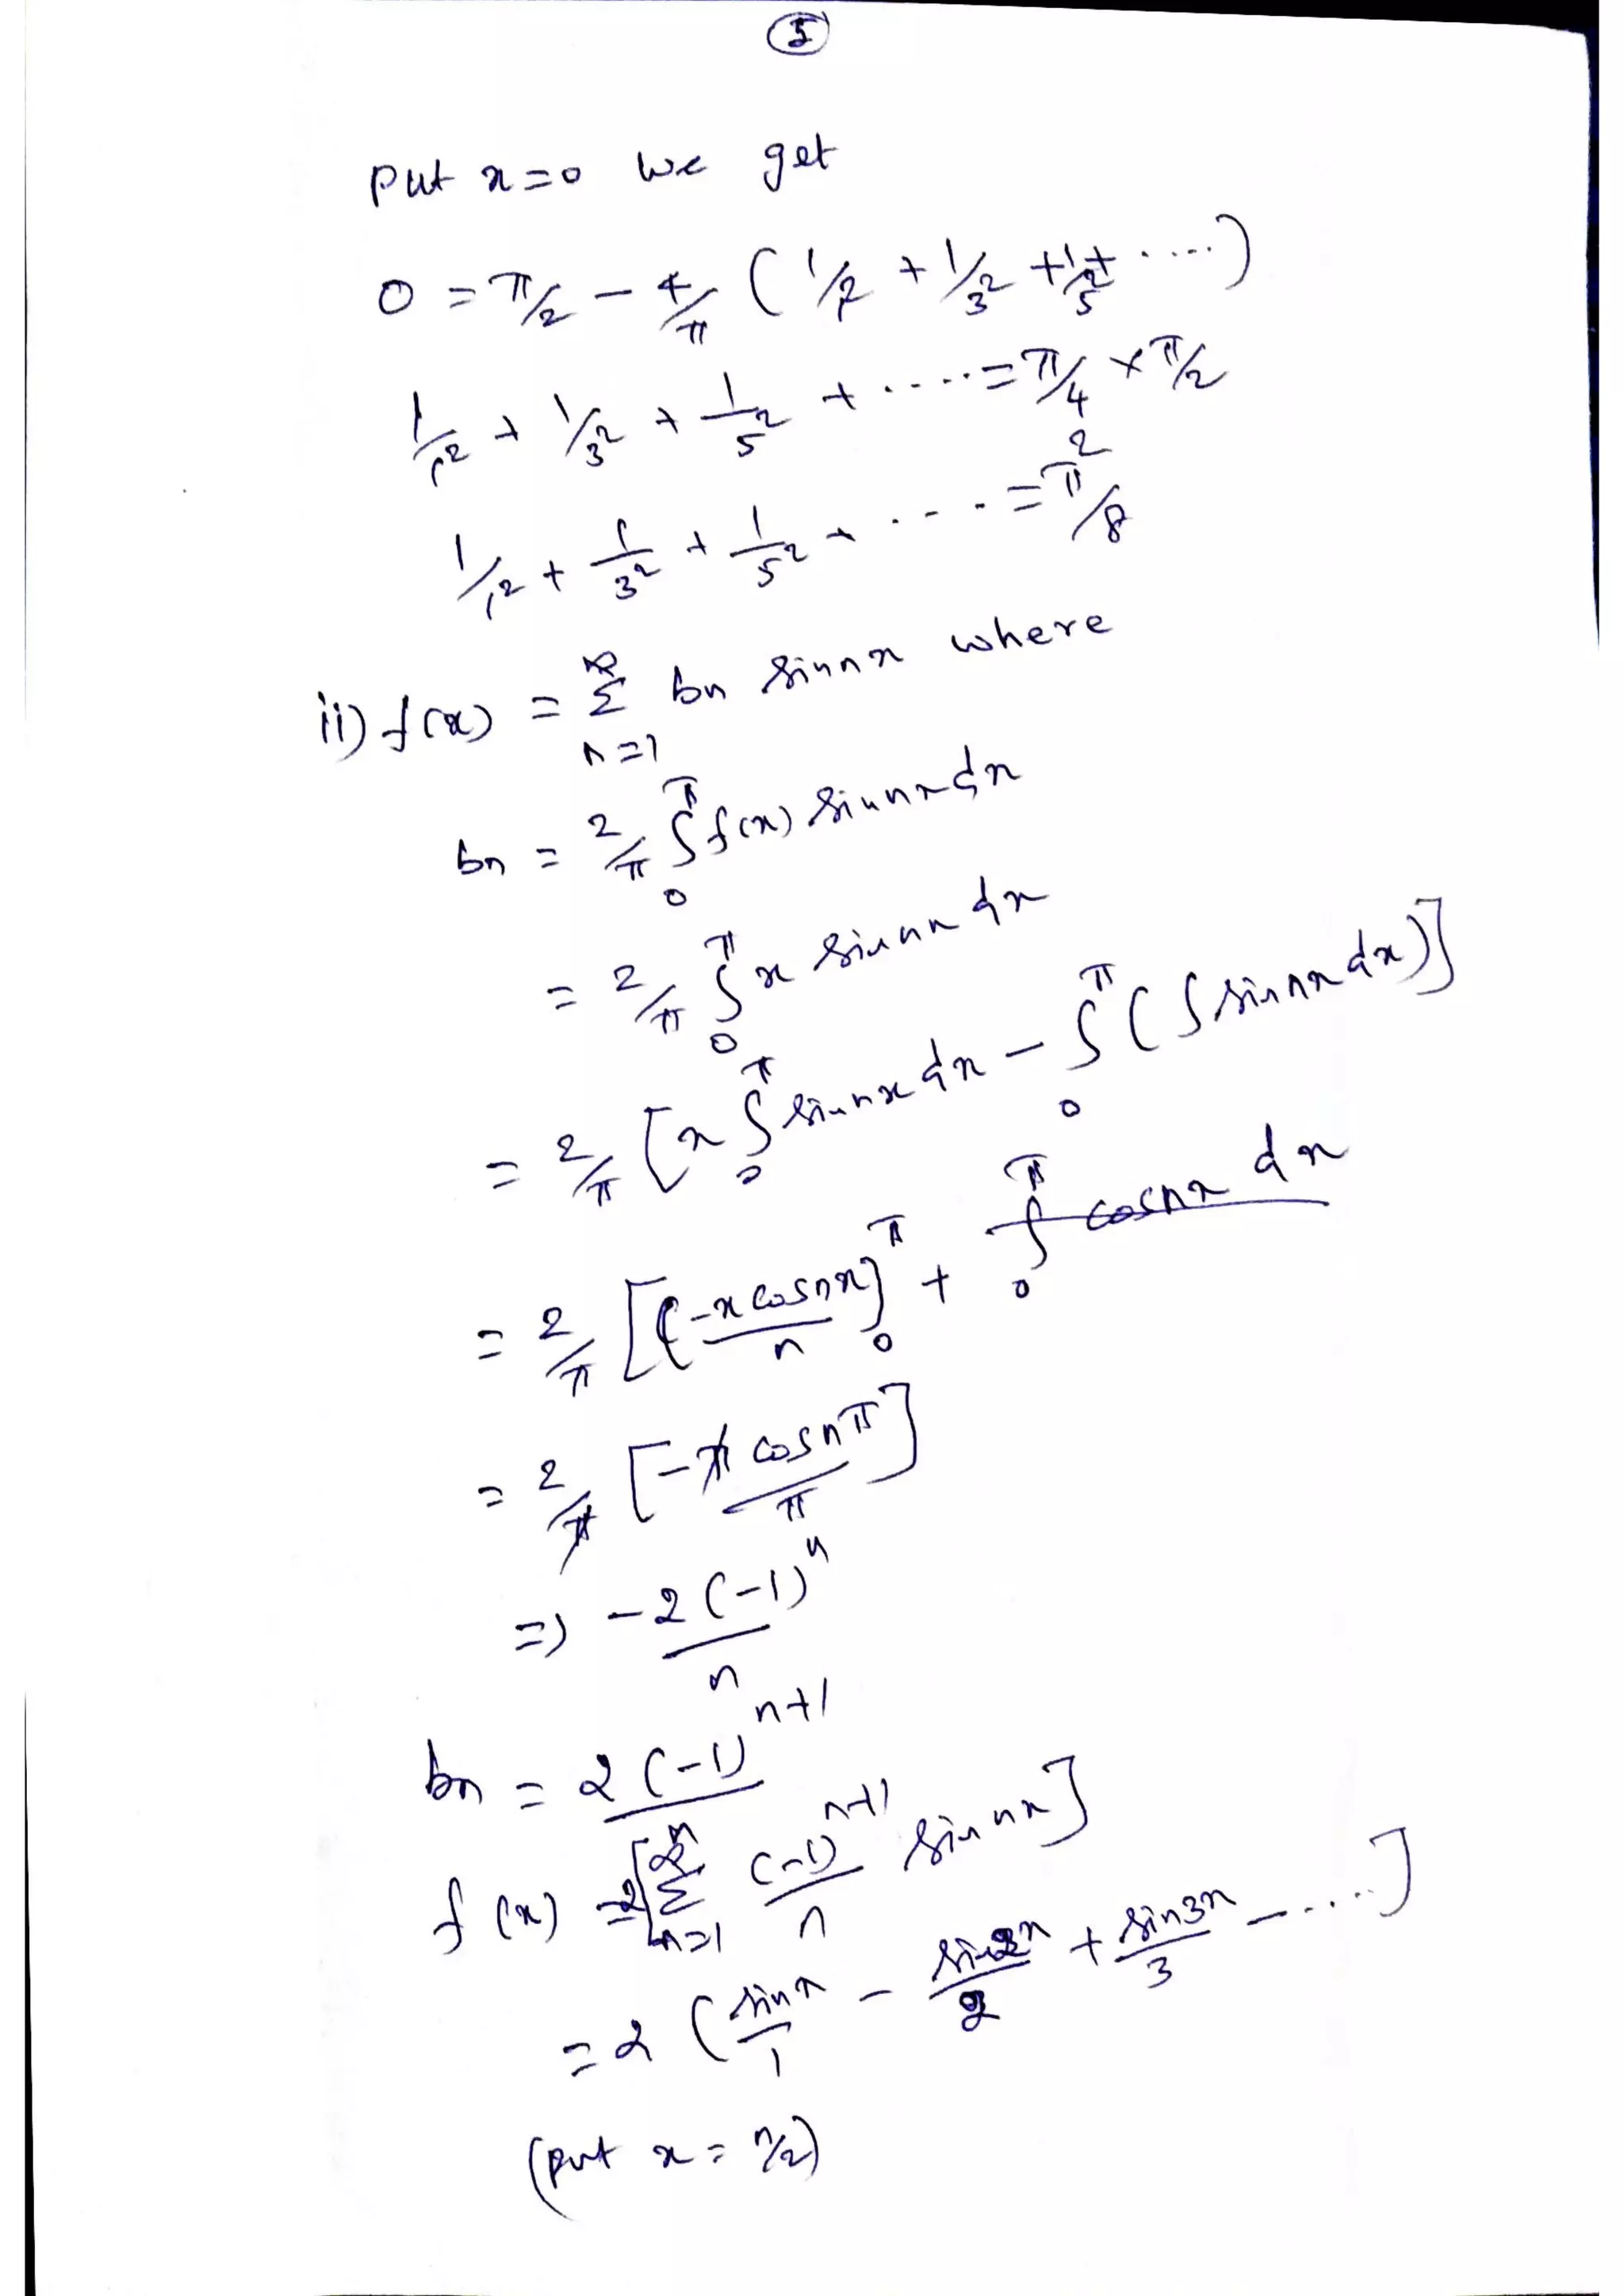 5
put x=0 we get
0 = π/2 - 4/π ( 1/1² + 1/3² + 1/5² + .....)
1/1² + 1/3² + 1/5² + ..... = π/4 × π/2
1/1² + 1/3² + 1/5² + .... = π²/8
ii) f(x) = ∞Σn=1 bn sinnx where
bn = 2/π ∫0^π f(x) sinnx dx
= 2/π ∫0^π x sinnx dx
= 2/π [x ∫0^π sinnx dx - ∫0^π (∫ sinnx dx)]
= 2/π [(-x cosnx)/n]0^π + ∫0^π cosnx dx
= 2/π [-π cosnπ/π]
=> -2(-1)^n/n
bn = 2(-1)^n+1/n
f(x) = 2[∞Σn=1 (-1)^n+1/n sinnx]
= 2 (sinx/1 - sin2x/2 + sin3x/3 - ....]
(put x = π/2)